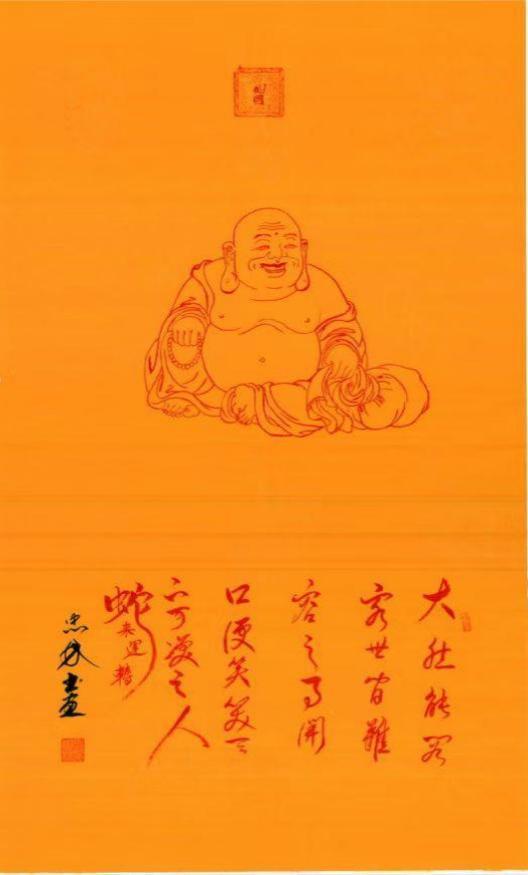 大肚能容
容世间難
容之事開
口便笑笑天
下可笑之人
蛇来運轉
忠 书画